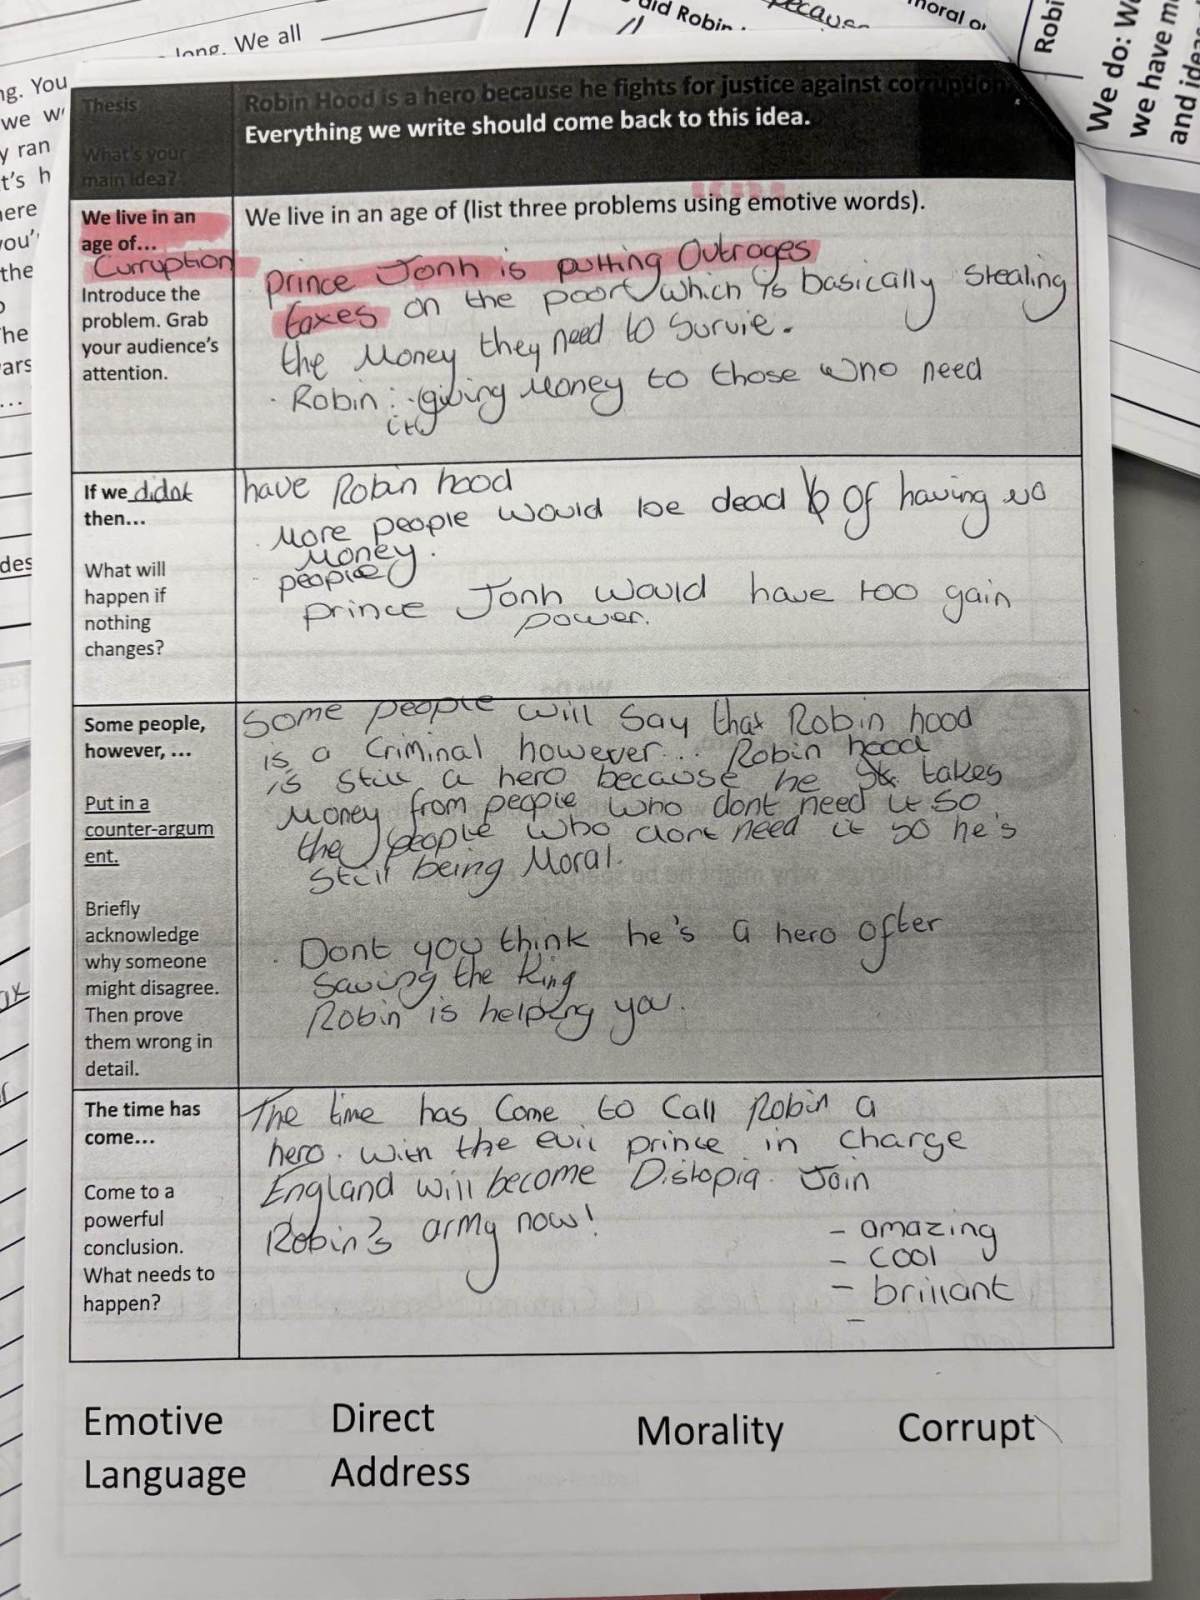 long. We all
ng. You
we w
y ran
t's h
here
you'
the
he
ars
...
des
did Robin
because
moral o
Robi
We do: W
we have m
and idea
Thesis
What's your
main idea?
Robin Hood is a hero because he fights for justice against corruption.
Everything we write should come back to this idea.
We live in an
age of...
Curruption
Introduce the
problem. Grab
your audience's
attention.
We live in an age of (list three problems using emotive words).
Prince Jonh is putting Outrages
taxes on the poor which is basically Stealing
the Money they need to Survie.
· Robin : giving Money to those who need
it
If we didnt
then...
What will
happen if
nothing
changes?
have Robin hood
· More people would be dead of having no
Money.
- people
prince Jonh would have too gain
power.
Some people,
however, ...
Put in a
counter-argum
ent.
Briefly
acknowledge
why someone
might disagree.
Then prove
them wrong in
detail.
Some people will Say that Robin hood
is a Criminal however... Robin hood
is still a hero because he takes
Money from people who dont need it so
the people who dont need it so he's
Still being Moral.
· Dont you think he's a hero after
Saving the King
Robin is helping you.
The time has
come...
Come to a
powerful
conclusion.
What needs to
happen?
The time has Come to Call Robin a
hero. With the evil prince in charge
England will become Distopia. Join
Robin's army now!
- amazing
- cool
- brillant
-
Emotive
Language
Direct
Address
Morality
Corrupt